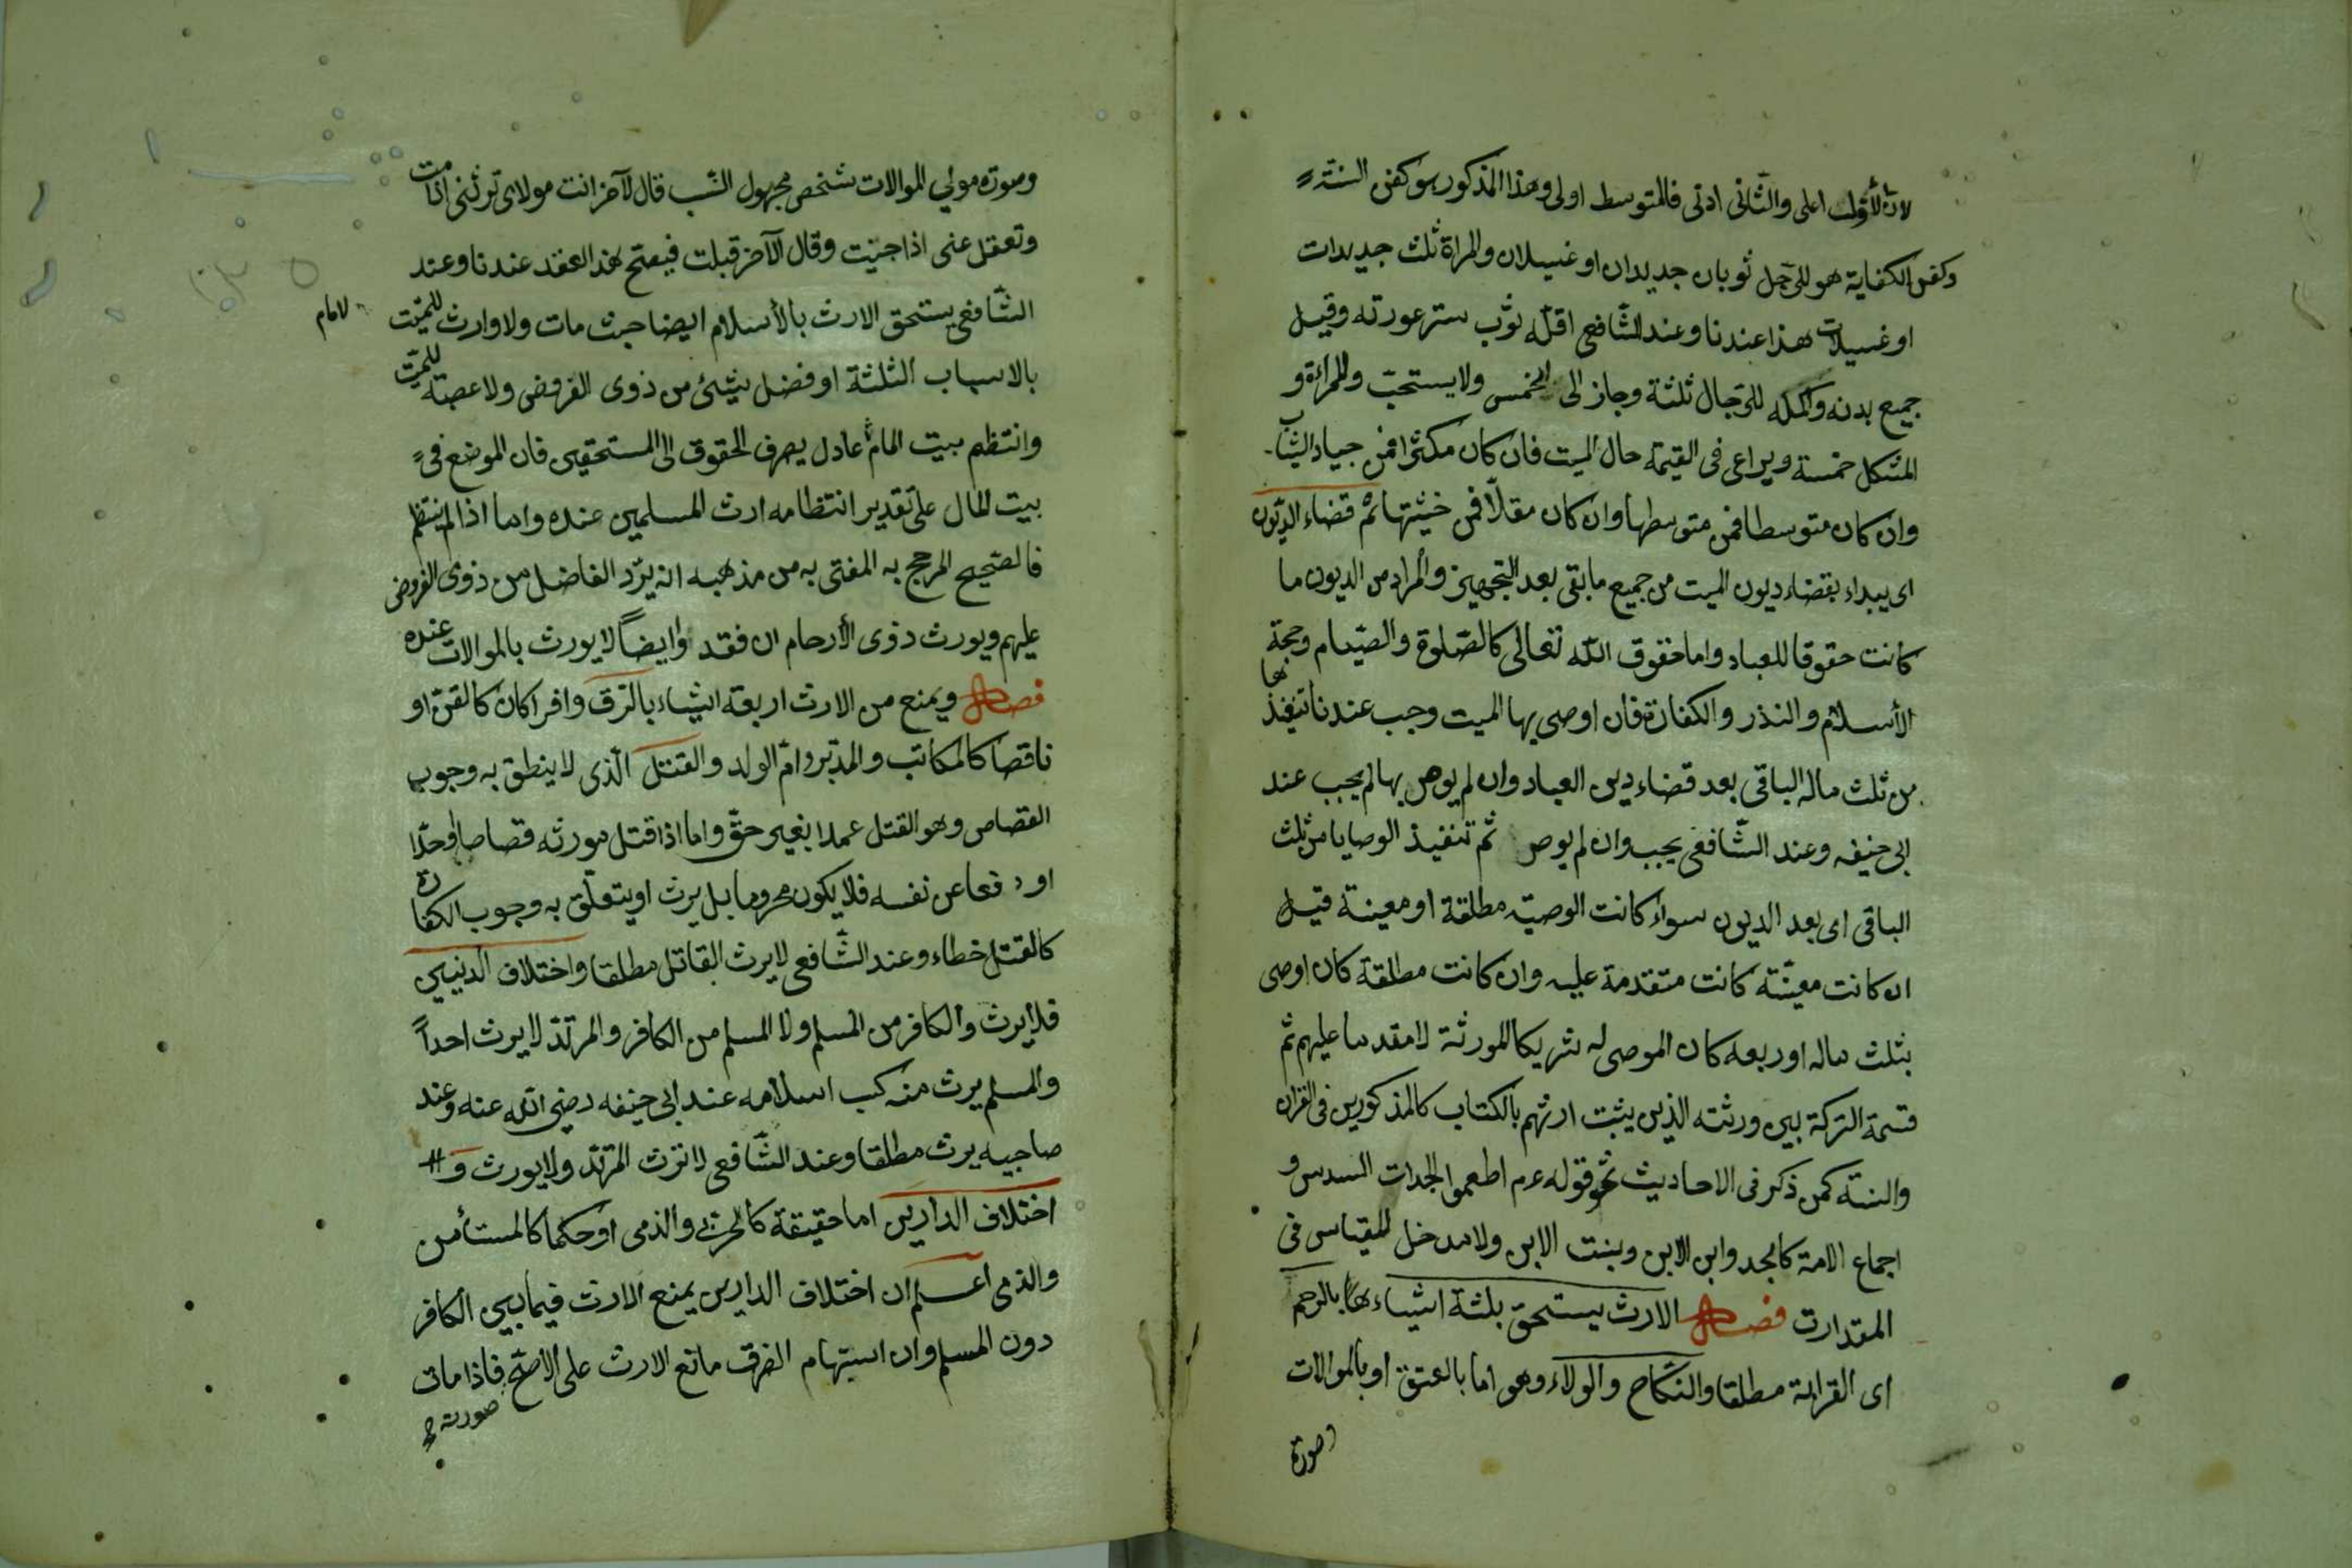 لان الأول اعلى والثانى ادنى فالمتوسط اولى وهذا المذكور هو كفن السنة
وكفن الكفاية هو للرجل ثوبان جديدان او غسيلان والمراة ثلث جديدات
او غسيلات هذا عندنا وعند الشافعى اقله ثوب ستر عورته وقيل
جميع بدنه واكمله للرجال ثلثة وجاز الى الخمس ولا يستحب وللمراءة و
المشكل خمسة ويراعى فى القيمة حال الميت فان كان مكثرا فمن جياد الثياب
وان كان متوسطا فمن متوسطها وان كان مقلا فمن خشنها ثم قضاء الديون
اى يبداء بقضاء ديون الميت من جميع ما بقى بعد التجهيز والمراد من الديون ما
كانت حقوقا للعباد واما حقوق الله تعالى كالصلوة والصيام وحجة
الأسلام والنذر والكفارة فان اوصى بها الميت وجب عندنا تنفيذها
من ثلث ماله الباقى بعد قضاء دين العباد وان لم يوص بها لم يجب عند
ابى حنيفه وعند الشافعى يجب وان لم يوص ثم تنفيذ الوصايا من ثلث
الباقى اى بعد الديون سواء كانت الوصية مطلقة او معينة قيل
ان كانت معينة كانت متقدمة عليه وان كانت مطلقة كان اوصى
بثلث ماله او ربعه كان الموصى له شريكا للورثة لا مقدما عليهم ثم
قسمة التركة بين ورثته الذين يثبت ارثهم بالكتاب كالمذكورين فى القران
والسنة كمن ذكر فى الاحاديث نحو قوله عم اطعموا الجدات السدس و
اجماع الامة كالجد وابن الابن وبنت الابن ولا مدخل للقياس فى
المقدارت فصل الارث يستحق بثلثة اشياء بالرحم
اى القرابة مطلقا والنكاح والولاء وهو اما بالعتق او بالموالات
وصورة
وصورة مولى الموالات شخص مجهول النسب قال لآخر انت مولاى ترثنى اذا مت
وتعقل عنى اذا جنيت وقال الآخر قبلت فيصح هذ العقد عندنا وعند
الشافعى يستحق الارث بالأسلام ايضا حيث مات ولا وارث للميت
لامام
بالاسباب الثلثة او فضل شئ من ذوى الفروض ولا عصبة للميت
وانتظم بيت المام عادل يصرف الحقوق الى المستحقين فان الموضع فى
بيت المال على تقدير انتظامه ارث المسلمين عنده واما اذا لم ينتظم
فالصحيح المرجح به المفتى به من مذهبه انه يرد الفاضل من ذوى الفروض
عليهم ويورث ذوى الأرحام ان فقد وايضاً لا يورث بالموالات عنده
فصل ويمنع من الارث اربعة اشياء بالرق وافرا كان كالقن او
ناقصا كالمكاتب والمدبر وام الولد والقتل الذى لا ينطق به وجوب
القصاص وهو القتل عمدا بغير حق واما اذا قتل مورثه قصاصا او حدا
او دفعا عن نفسه فلا يكون محروما بل يرث او يتعلق به وجوب الكفارة
كالقتل خطاء وعند الشافعى لا يرث القاتل مطلقا واختلاف الدينين
فلا يرث والكافر من المسلم ولا المسلم من الكافر والمرتد لا يرث احداً
والمسلم يرث منه كسب اسلامه عند ابى حنيفه رضى الله عنه وعند
صاحبيه يرث مطلقا وعند الشافعى لا ترث المرتد ولا يورث و
اختلاف الدارين اما حقيقة كالحربى والذمى او حكما كالمستأمن
والذمى اعلم ان اختلاف الدارين يمنع الارث فيما بين الكافر
دون المسلم وان استبهام الغرق مانع الارث على الاصح فاذا مات
صورته